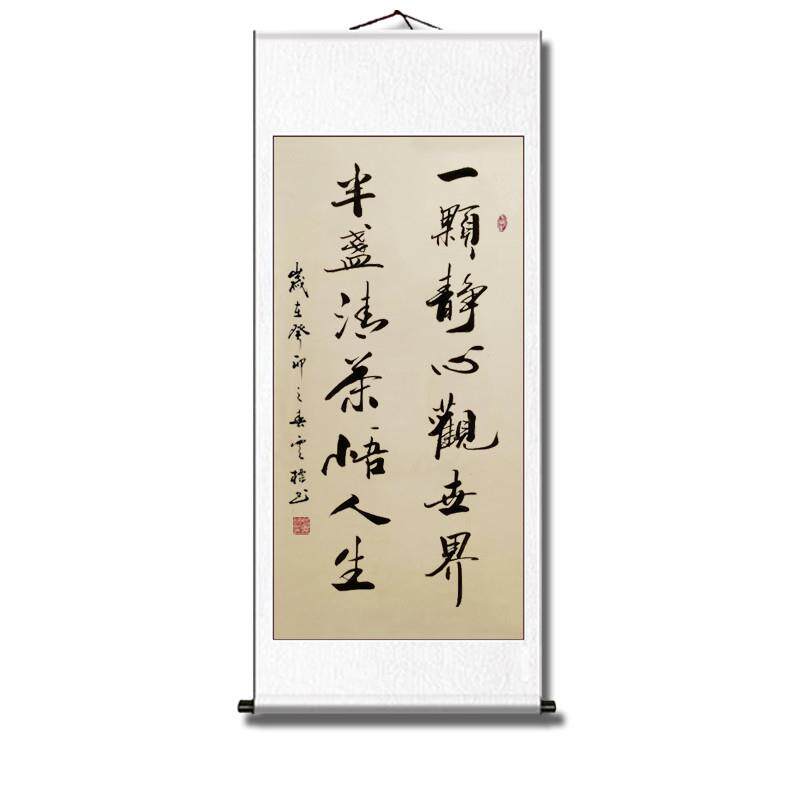 一顆靜心觀世界
半盞清茶悟人生
歲在癸卯之春雲